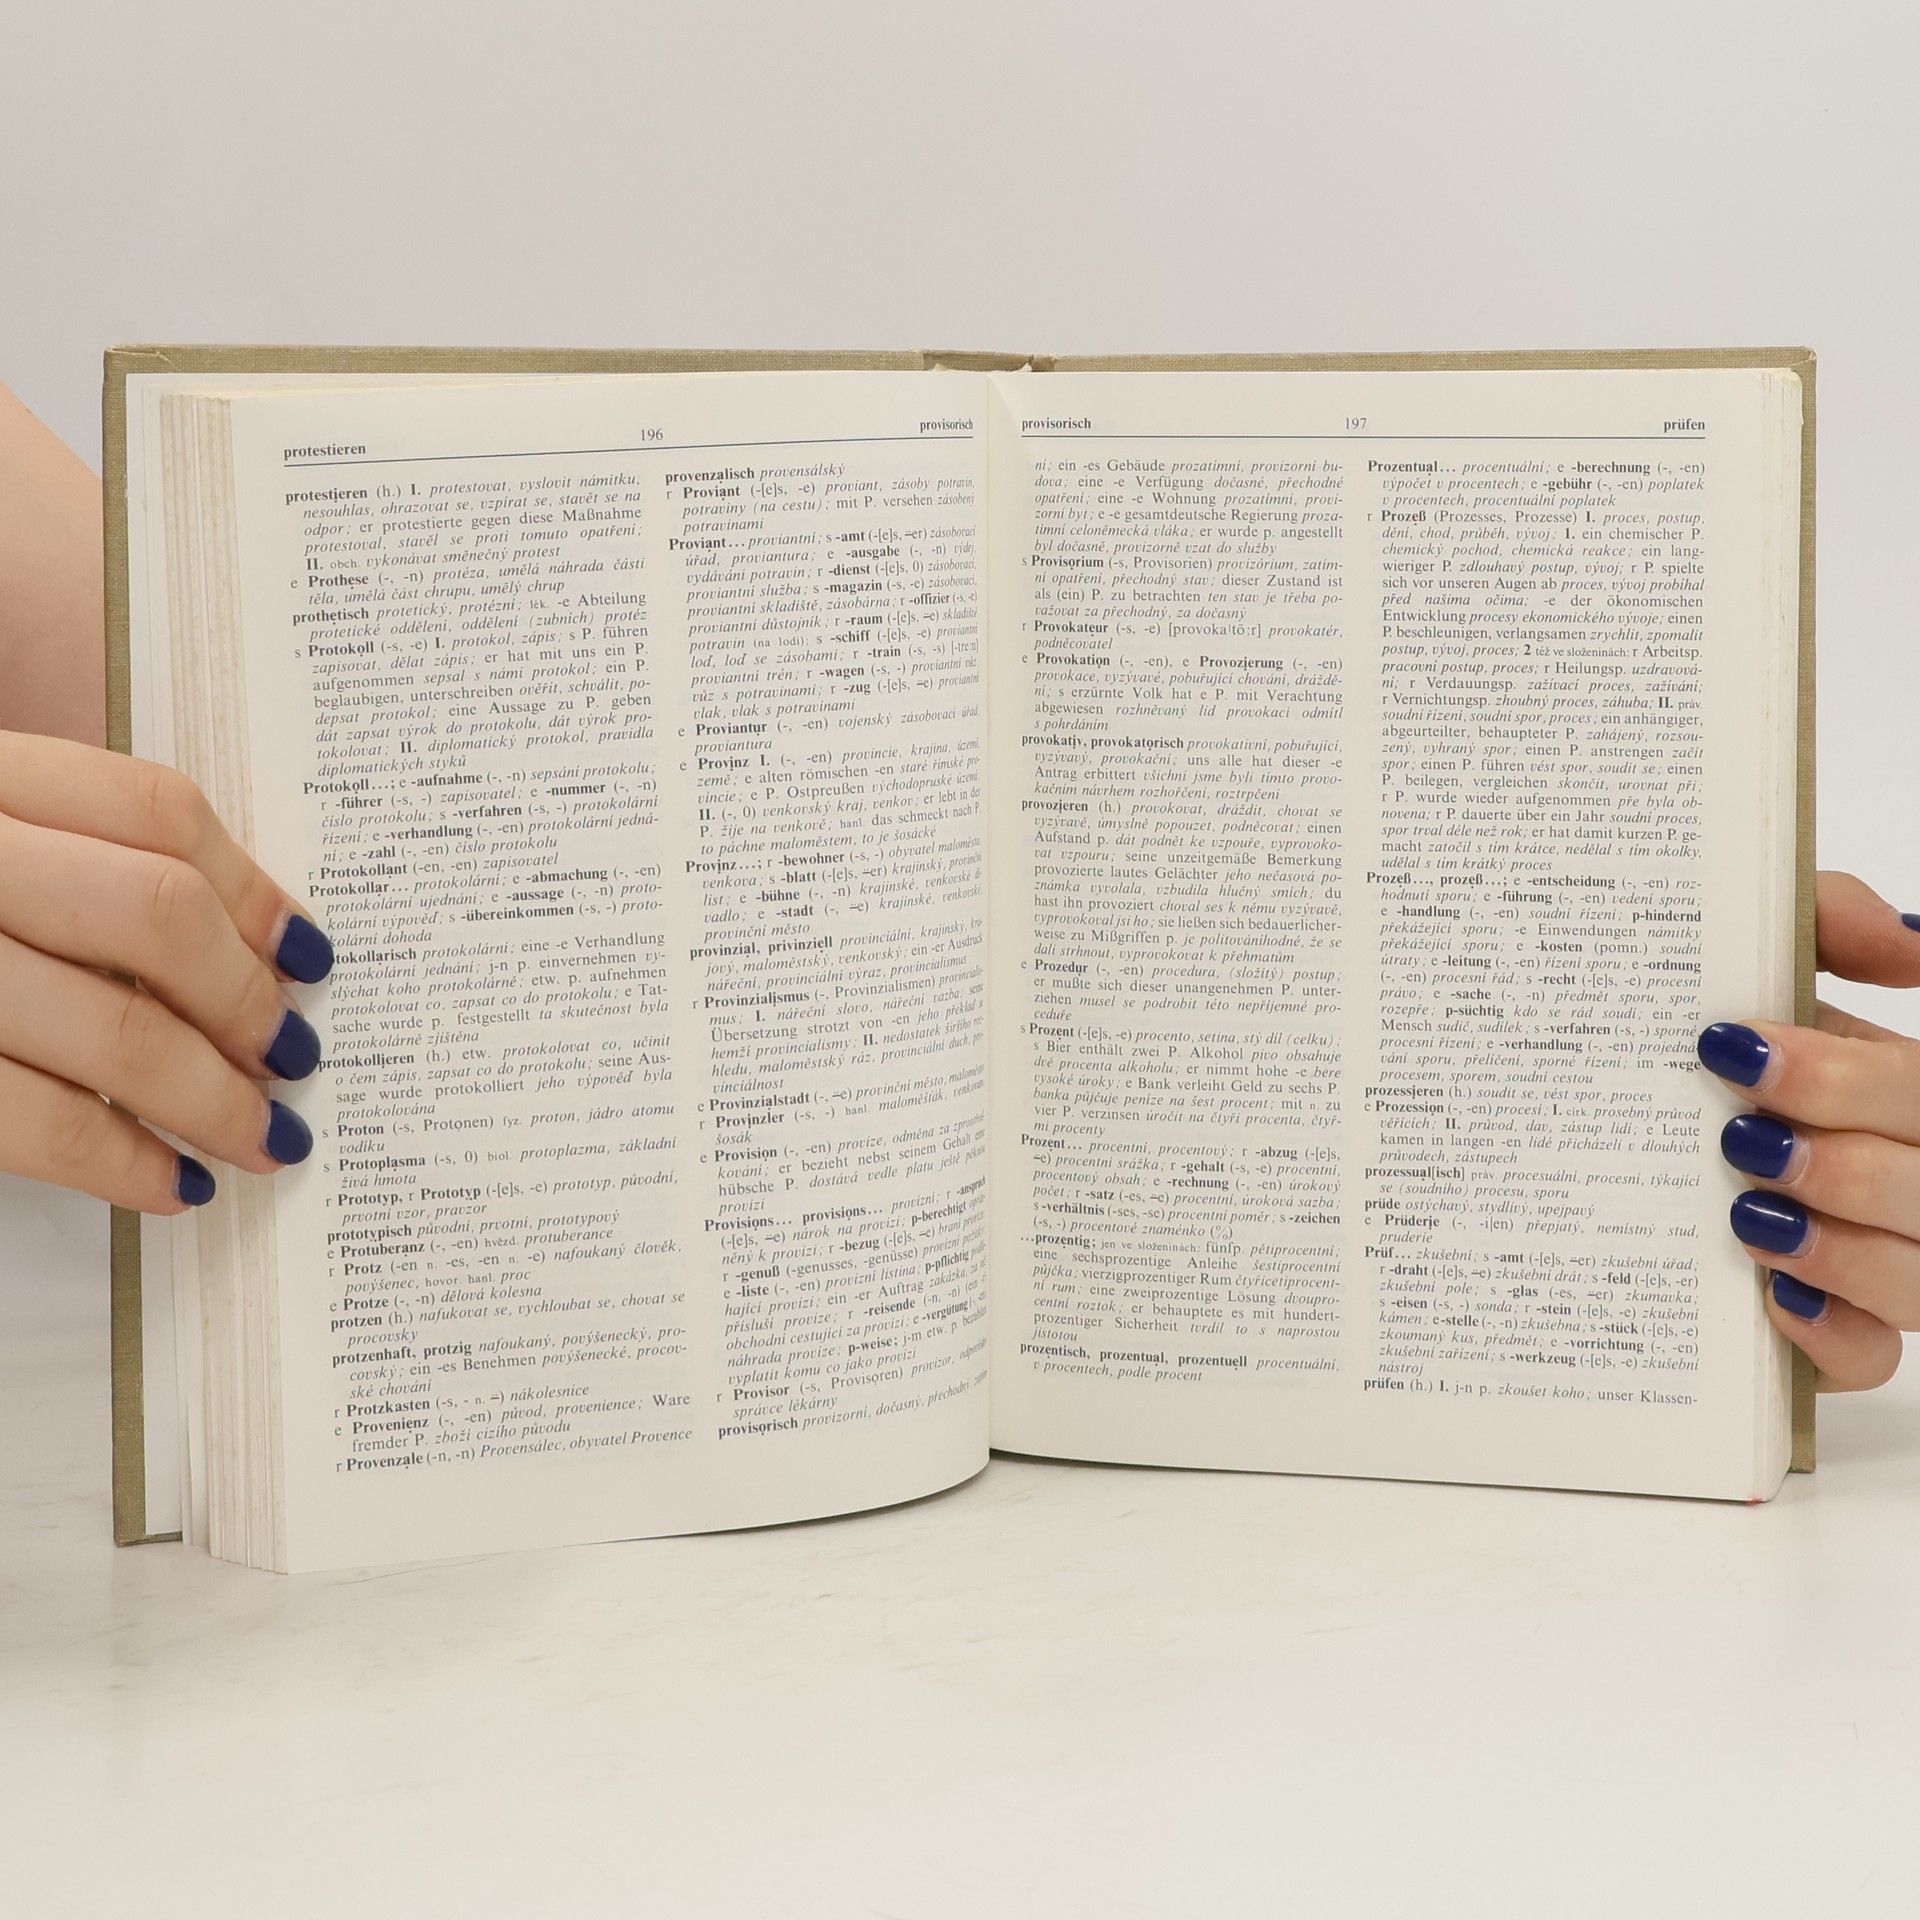 protestieren 196 provisorisch
protestieren (h.) I. protestovat, vyslovit námitku,
nesouhlas, ohrazovat se, vzpírat se, stavět se na
odpor; er protestierte gegen diese Maßnahme
protestoval, stavěl se proti tomuto opatření;
II. obch. vykonávat směnečný protest
e Prothese (-, -n) protéza, umělá náhrada části
těla, umělá část chrupu, umělý chrup
prothetisch protetický, protézní; lék. -e Abteilung
protetické oddělení, oddělení (zubních) protéz
s Protokoll (-s, -e) I. protokol, zápis; s P. führen
zapisovat, dělat zápis; er hat mit uns ein P.
aufgenommen sepsal s námi protokol; ein P.
beglaubigen, unterschreiben ověřit, schválit, po-
depsat protokol; eine Aussage zu P. geben
dát zapsat výrok do protokolu, dát výrok pro-
tokolovat; II. diplomatický protokol, pravidla
diplomatických styků
Protokoll...; e -aufnahme (-, -n) sepsání protokolu;
r -führer (-s, -) zapisovatel; e -nummer (-, -n)
číslo protokolu; s -verfahren (-s, -) protokolární
řízení; e -verhandlung (-, -en) protokolární jedná-
ní; e -zahl (-, -en) číslo protokolu
r Protokollant (-en, -en) zapisovatel
Protokollar... protokolární; e -abmachung (-, -en)
protokolární ujednání; e -aussage (-, -n) proto-
kolární výpověď; s -übereinkommen (-s, -) proto-
kolární dohoda
tokollarisch protokolární; eine -e Verhandlung
protokolární jednání; j-n p. einvernehmen vy-
slýchat koho protokolárně; etw. p. aufnehmen
protokolovat co, zapsat co do protokolu; e Tat-
sache wurde p. festgestellt ta skutečnost byla
protokolárně zjištěna
protokollieren (h.) etw. protokolovat co, učinit
o čem zápis, zapsat co do protokolu; seine Aus-
sage wurde protokolliert jeho výpověď byla
protokolována
s Proton (-s, Protonen) fyz. proton, jádro atomu
vodíku
s Protoplasma (-s, 0) biol. protoplazma, základní
živá hmota
r Prototyp, r Prototyp (-[e]s, -e) prototyp, původní,
prvotní vzor, pravzor
prototypisch původní, prvotní, prototypový
e Protuberanz (-, -en) hvězd. protuberance
r Protz (-en n. -es, -en n. -e) nafoukaný člověk,
povýšenec, hovor. hanl. proc
e Protze (-, -n) dělová kolesna
protzen (h.) nafukovat se, vychloubat se, chovat se
procovsky
protzenhaft, protzig nafoukaný, povýšenecký, pro-
covský; ein -es Benehmen povýšenecké, procov-
ské chování
r Protzkasten (-s, - n. ⸚) nákolesnice
e Provenienz (-, -en) původ, provenience; Ware
fremder P. zboží cizího původu
r Provenzale (-n, -n) Provensálec, obyvatel Provence
provenzalisch provensálský
r Proviant (-[e]s, -e) proviant, zásoby potravin,
potraviny (na cestu); mit P. versehen zásobený
potravinami
Proviant... proviantní; s -amt (-[e]s, ⸚er) zásobovací
úřad, proviantura; e -ausgabe (-, -n) výdej,
vydávání potravin; r -dienst (-[e]s, 0) zásobovací,
proviantní služba; s -magazin (-s, -e) zásobovací,
proviantní skladiště, zásobárna; r -offizier (-s, -e)
proviantní důstojník; r -raum (-[e]s, ⸚e) skladiště
potravin (na lodi); s -schiff (-[e]s, -e) proviantní
loď, loď se zásobami; r -train (-s, -s) [-tre:n]
proviantní trén; r -wagen (-s, -) proviantní vůz,
vůz s potravinami; r -zug (-[e]s, ⸚e) proviantní
vlak, vlak s potravinami
e Proviantur (-, -en) vojenský zásobovací úřad,
proviantura
e Provinz I. (-, -en) provincie, krajina, území,
země; e alten römischen -en staré římské pro-
vincie; e P. Ostpreußen východopruské území;
II. (-, 0) venkovský kraj, venkov; er lebt in der
P. žije na venkově; hanl. das schmeckt nach P.
to páchne maloměstem, to je šosácké
Provinz...; r -bewohner (-s, -) obyvatel maloměsta,
venkova; s -blatt (-[e]s, ⸚er) krajinský, provinční
list; e -bühne (-, -n) krajinské, venkovské di-
vadlo; e -stadt (-, ⸚e) krajinské, venkovské,
provinční město
provinzial, privinziell provinciální, krajinský, kra-
jový, maloměstský, venkovský; ein -er Ausdruck
nářeční, provinciální výraz, provincialismus
r Provinzialismus (-, Provinzialismen) provincialis-
mus; I. nářeční slovo, nářeční vazba; seine
Übersetzung strotzt von -en jeho překlad se
hemží provincialismy; II. nedostatek širšího roz-
hledu, maloměstský ráz, provinciální duch, pro-
vinciálnost
e Provinzialstadt (-, ⸚e) provinční město, maloměsto
r Provinzler (-s, -) hanl. maloměšťák, venkovan,
šosák
e Provision (-, -en) provize, odměna za zprostřed-
kování; er bezieht nebst seinem Gehalt eine
hübsche P. dostává vedle platu ještě pěknou
provizi
Provisions... provisions... provizní; r -anspruch
(-[e]s, ⸚e) nárok na provizi; p-berechtigt opráv-
něný k provizi; r -bezug (-[e]s, ⸚e) braní provize;
r -genuß (-genusses, -genüsse) provizní požitky;
e -liste (-, -en) provizní listina; p-pflichtig podlé-
hající provizi; ein -er Auftrag zakázka, za niž
přísluší provize; r -reisende (-n, -n) (ein -r)
obchodní cestující za provizi; e -vergütung (-, -en)
náhrada provize; p-weise; j-m etw. p. bezahlen
vyplatit komu co jako provizi
r Provisor (-s, Provisoren) provizor, odpovědný
správce lékárny
provisorisch provizorní, dočasný, přechodný, zatím-
provisorisch 197 prüfen
ní; ein -es Gebäude prozatímní, provizorní bu-
dova; eine -e Verfügung dočasné, přechodné
opatření; eine -e Wohnung prozatímní, provi-
zorní byt; e -e gesamtdeutsche Regierung proza-
tímní celoněmecká vláda; er wurde p. angestellt
byl dočasně, provizorně vzat do služby
s Provisorium (-s, Provisorien) provizórium, zatím-
ní opatření, přechodný stav; dieser Zustand ist
als (ein) P. zu betrachten ten stav je třeba po-
važovat za přechodný, za dočasný
r Provokateur (-s, -e) [provoka'tö:r] provokatér,
podněcovatel
e Provokation (-, -en), e Provozierung (-, -en)
provokace, vyzývavé, pobuřující chování, dráždě-
ní; s erzürnte Volk hat e P. mit Verachtung
abgewiesen rozhněvaný lid provokaci odmítl
s pohrdáním
provokativ, provokatorisch provokativní, pobuřující,
vyzývavý, provokační; uns alle hat dieser -e
Antrag erbittert všichni jsme byli tímto provo-
kačním návrhem rozhořčeni, roztrpčeni
provozieren (h.) provokovat, dráždit, chovat se
vyzývavě, úmyslně popouzet, podněcovat; einen
Aufstand p. dát podnět ke vzpouře, vyprovoko-
vat vzpouru; seine unzeitgemäße Bemerkung
provozierte lautes Gelächter jeho nečasová po-
známka vyvolala, vzbudila hlučný smích; du
hast ihn provoziert choval ses k němu vyzývavě,
vyprovokoval jsi ho; sie ließen sich bedauerlicher-
weise zu Mißgriffen p. je politováníhodné, že se
dali strhnout, vyprovokovat k přehmatům
e Prozedur (-, -en) procedura, (složitý) postup;
er mußte sich dieser unangenehmen P. unter-
ziehen musel se podrobit této nepříjemné pro-
ceduře
s Prozent (-[e]s, -e) procento, setina, stý díl (celku);
s Bier enthält zwei P. Alkohol pivo obsahuje
dvě procenta alkoholu; er nimmt hohe -e bere
vysoké úroky; e Bank verleiht Geld zu sechs P.
banka půjčuje peníze na šest procent; mit n. zu
vier P. verzinsen úročit na čtyři procenta, čtyř-
mi procenty
Prozent... procentní, procentový; r -abzug (-[e]s,
⸚e) procentní srážka; r -gehalt (-s, -e) procentní,
procentový obsah; e -rechnung (-, -en) úrokový
počet; r -satz (-es, ⸚e) procentní, úroková sazba;
s -verhältnis (-ses, -se) procentní poměr; s -zeichen
(-s, -) procentové znaménko (%)
...prozentig; jen ve složeninách: fünfp. pětiprocentní;
eine sechsprozentige Anleihe šestiprocentní
půjčka; vierzigprozentiger Rum čtyřicetiprocent-
ní rum; eine zweiprozentige Lösung dvoupro-
centní roztok; er behauptete es mit hundert-
prozentiger Sicherheit tvrdil to s naprostou
jistotou
prozentisch, prozentual, prozentuell procentuální,
v procentech, podle procent
Prozentual... procentuální; e -berechnung (-, -en)
výpočet v procentech; e -gebühr (-, -en) poplatek
v procentech, procentuální poplatek
r Prozeß (Prozesses, Prozesse) I. proces, postup,
dění, chod, průběh, vývoj; 1. ein chemischer P.
chemický pochod, chemická reakce; ein lang-
wieriger P. zdlouhavý postup, vývoj; r P. spielte
sich vor unseren Augen ab proces, vývoj probíhal
před našima očima; -e der ökonomischen
Entwicklung procesy ekonomického vývoje; einen
P. beschleunigen, verlangsamen zrychlit, zpomalit
postup, vývoj, proces; 2 též ve složeninách: r Arbeitsp.
pracovní postup, proces; r Heilungsp. uzdravová-
ní; r Verdauungsp. zažívací proces, zažívání;
r Vernichtungsp. zhoubný proces, záhuba; II. práv.
soudní řízení, soudní spor, proces; ein anhängiger,
abgeurteilter, behaupteter P. zahájený, rozsou-
zený, vyhraný spor; einen P. anstrengen začít
spor; einen P. führen vést spor, soudit se; einen
P. beilegen, vergleichen skončit, urovnat při;
r P. wurde wieder aufgenommen pře byla ob-
novena; r P. dauerte über ein Jahr soudní proces,
spor trval déle než rok; er hat damit kurzen P. ge-
macht zatočil s tím krátce, nedělal s tím okolky,
udělal s tím krátký proces
Prozeß..., prozeß...; e -entscheidung (-, -en) roz-
hodnutí sporu; e -führung (-, -en) vedení sporu;
e -handlung (-, -en) soudní řízení; p-hindernd
překážející sporu; -e Einwendungen námitky
překážející sporu; e -kosten (pomn.) soudní
útraty; e -leitung (-, -en) řízení sporu; e -ordnung
(-, -en) procesní řád; s -recht (-[e]s, -e) procesní
právo; e -sache (-, -n) předmět sporu, spor,
rozepře; p-süchtig kdo se rád soudí; ein -er
Mensch sudič, sudílek; s -verfahren (-s, -) sporné,
procesní řízení; e -verhandlung (-, -en) projedná-
vání sporu, přelíčení, sporné řízení; im -wege
procesem, sporem, soudní cestou
prozessieren (h.) soudit se, vést spor, proces
e Prozession (-, -en) procesí; I. círk. prosebný průvod
věřících; II. průvod, dav, zástup lidí; e Leute
kamen in langen -en lidé přicházeli v dlouhých
průvodech, zástupech
prozessual[isch] práv. procesuální, procesní, týkající
se (soudního) procesu, sporu
prüde ostýchavý, stydlivý, upejpavý
e Prüderie (-, -i|en) přepjatý, nemístný stud,
pruderie
Prüf... zkušební; s -amt (-[e]s, ⸚er) zkušební úřad;
r -draht (-[e]s, ⸚e) zkušební drát; s -feld (-[e]s, -er)
zkušební pole; s -glas (-es, ⸚er) zkumavka;
s -eisen (-s, -) sonda; r -stein (-[e]s, -e) zkušební
kámen; e -stelle (-, -n) zkušebna; s -stück (-[e]s, -e)
zkoumaný kus, předmět; e -vorrichtung (-, -en)
zkušební zařízení; s -werkzeug (-[e]s, -e) zkušební
nástroj
prüfen (h.) I. j-n p. zkoušet koho; unser Klassen-